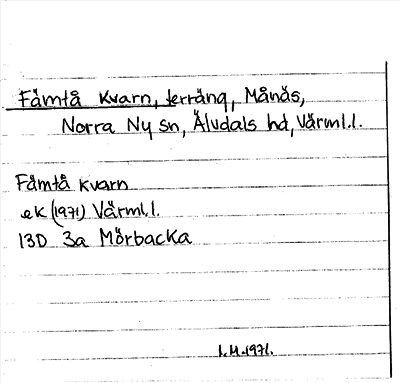 Fämtå Kvarn, terräng, Månäs,
Norra Ny sn, Älvdals hd, Värml.l.
Fämtå kvarn
ek (1971) Värml.l.
13D 3a Mörbacka
1.M.1971.